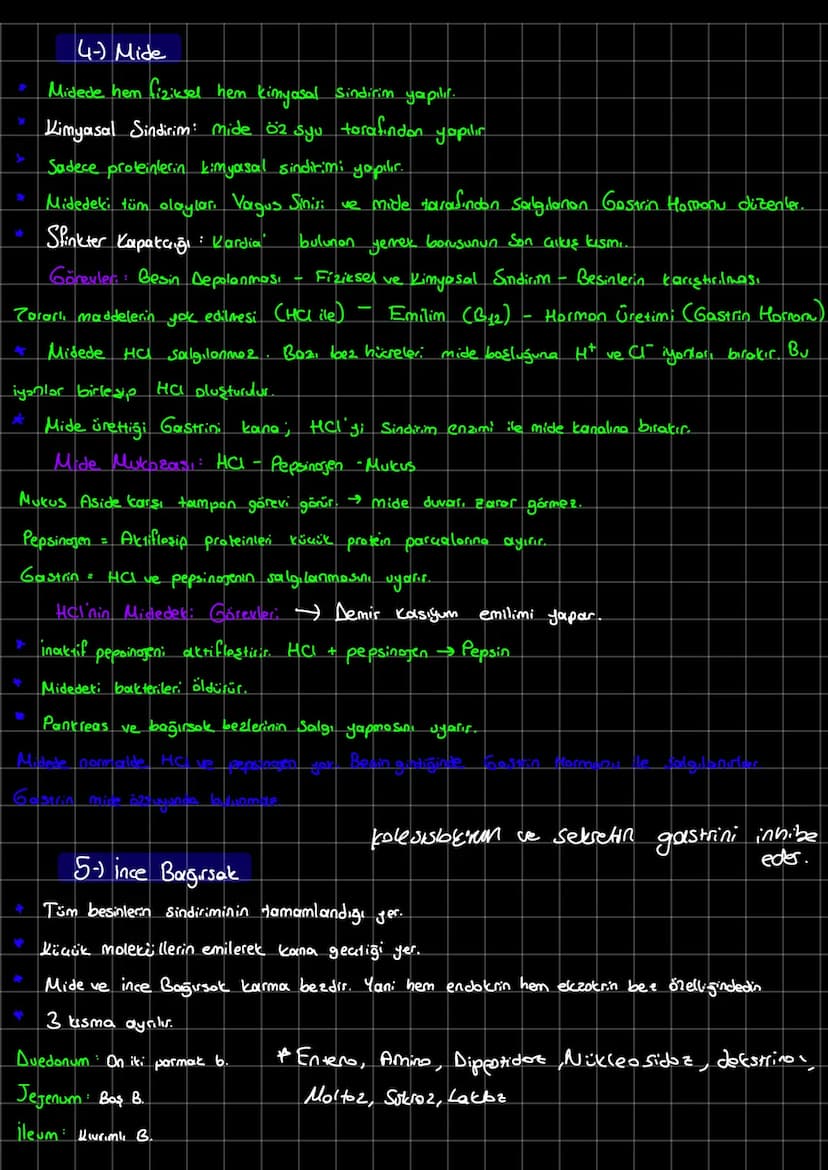 4-) Mide
* Midede hem fiziksel hem kimyasal sindirim yapılır.
* Kimyasal Sindirim: mide öz syu tarafından yapılır
* Sadece proteinlerin kimyasal sindirimi yapılır.
* Midedeki tüm olayları Vagus Siniri ve mide tarafından salgılanan Gastrin Hormonu düzenler.
* Sfinkter Kapakcığı: Kardia' bulunan yemek borusunun son çıkış kısmı.
Görevleri: Besin Depolanması - Fiziksel ve Kimyasal Sindirim - Besinlerin karıştırılması
Zararlı maddelerin yok edilmesi (HCl ile) - Emilim (B12) - Hormon Üretimi (Gastrin Hormonu)
* Midede HCl salgılanmaz. Bazı bez hücreleri mide boşluğuna H⁺ ve Cl⁻ iyonları bırakır. Bu
iyonlar birleşip HCl oluşturdur.
* Mide ürettiği Gastrini kana; HCl'yi Sindirim enzimi ile mide kanalına bırakır.
Mide Mukozası: HCl - Pepsinojen - Mukus
Mukus Aside karşı tampon görevi görür. → mide duvarı zarar görmez.
Pepsinojen = Aktifleşip proteinleri küçük protein parçalarına ayırır.
Gastrin = HCl ve pepsinojenin salgılanmasını uyarır.
HCl'nin Midedeki Görevleri → Demir kalsiyum emilimi yapar.
* inaktif pepsinojeni aktifleştirir. HCl + pepsinojen → Pepsin
* Midedeki bakterileri öldürür.
* Pankreas ve bağırsak bezlerinin salgı yapmasını uyarır.
Midede normalde HCl ve pepsinojen yok. Besin girdiğinde Gastrin Hormonu ile salgılanırlar
Gastrin mide özsuyunda bulunmaz.
kolesistokinin ve sekretin gastrini inhibe
eder.
5-) ince Bağırsak
* Tüm besinlerin sindiriminin tamamlandığı yer.
* Küçük moleküllerin emilerek kana geçtiği yer.
* Mide ve ince Bağırsak karma bezdir. Yani hem endokrin hem ekzokrin bez özelliğindedir
* 3 kısma ayrılır.
Duedonum: On iki parmak b. * Entero, Amino, Dippetidaz, Nükleosidaz, dekstrinaz,
Jejenum: Boş B. Maltaz, Sükraz, Laktaz
İleum: Kıvrımlı B.